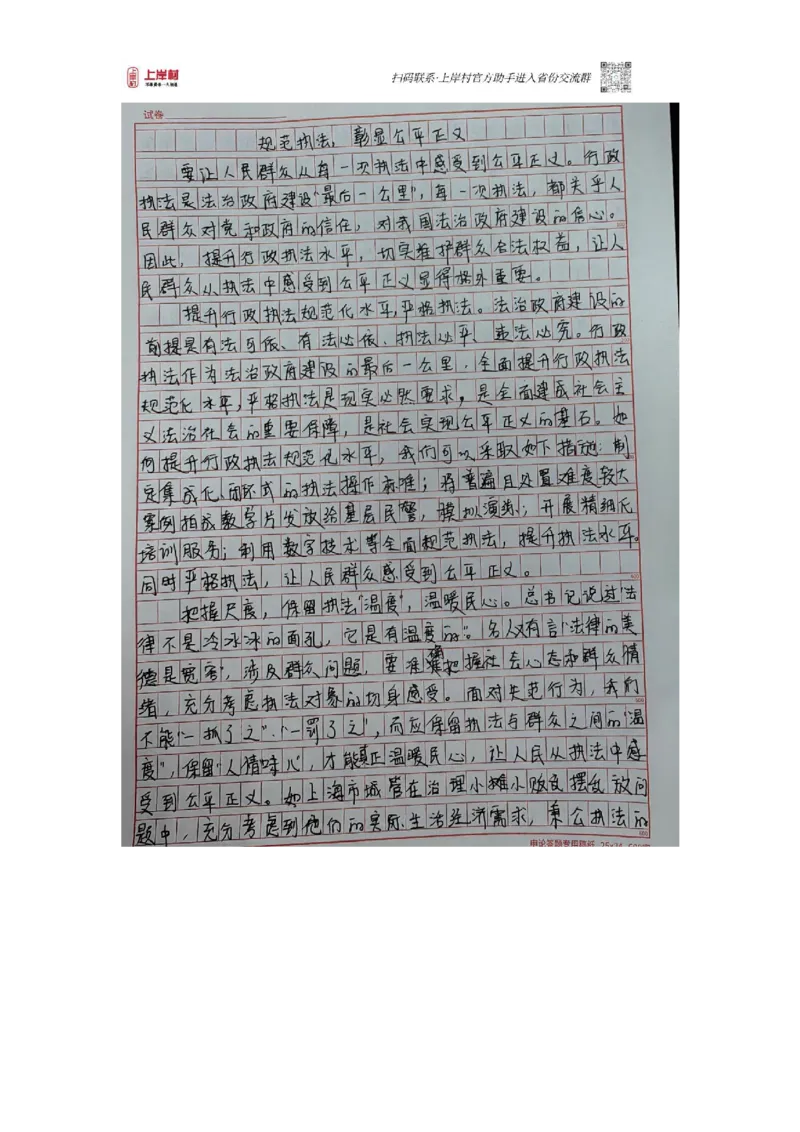 上岸村
扫码联系·上岸村官方助手进入省份交流群
试卷
规范执法，彰显公平正义
要让人民群众从每一次执法中感受到公平正义。行政
执法是法治政府建设"最后一公里"，每一次执法，都关乎人
民群众对党和政府的信任，对我国法治政府建设的信心。
因此，提升行政执法水平，切实维护群众合法权益，让人
民群众从执法中感受到公平正义显得格外重要。
提升行政执法规范化水平，严格执法。法治政府建设的
前提是有法可依、有法必依、执法必严、违法必究。行政
执法作为法治政府建设的最后一公里，全面提升行政执法
规范化水平，严格执法是现实必然要求，是全面建成社会主
义法治社会的重要保障，是社会实现公平正义的基石。如
何提升行政执法规范化水平，我们可以采取如下措施：制
定集成化、闭环式的执法操作标准；将普遍且处置难度较大
案例拍成数字片发放给基层民警，模拟演练；开展精细化
培训服务；利用数字技术等全面规范执法，提升执法水平。
同时严格执法，让人民群众感受到公平正义。
把握尺度，保留执法"温度"，温暖民心。总书记说过"法
律不是冷冰冰的面孔，它是有温度的"。名人又有言"法律的美
德是宽容"，涉及群众问题，要准确把握社会心态和群众情
绪，充分考虑执法对象的切身感受。面对失范行为，我们
不能"一抓了之"、"一罚了之"，而应保留执法与群众之间的"温
度"，保留"人情味儿"，才能真正温暖民心，让人民从执法中感
受到公平正义。如上海市城管在治理小摊小贩乱摆乱放问
题中，充分考虑到他们的实际生活经济需求，秉公执法的